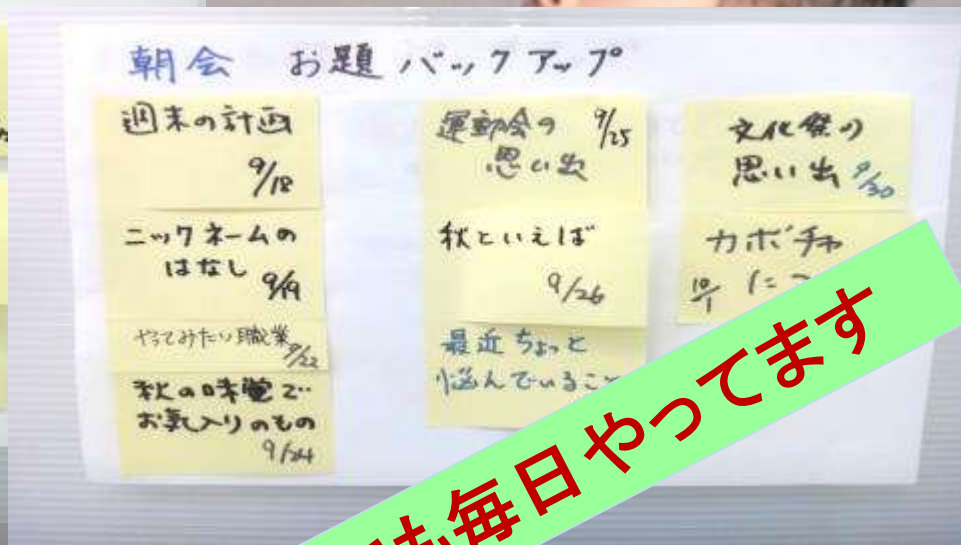 朝会 お題バックアップ
週末の計画
9/18
ニックネームの
はなし 9/19
やってみたい職業
9/22
秋の味覚で
お気入りのもの
9/24
運動会の 9/25
思い出
秋といえば
9/26
最近ちょっと
悩んでいること
文化祭の
思い出 9/30
カボチャ
10/1 に
も毎日やってます